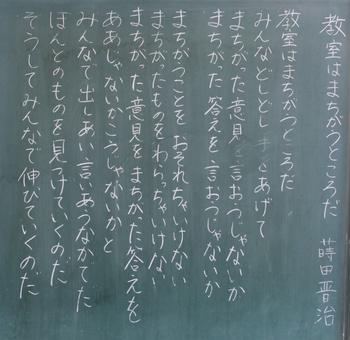 教室はまちがうところだ
蒔田晋治
教室はまちがうところだ
みんなどしどし手をあげて
まちがった意見を言おうじゃないか
まちがった答えを言おうじゃないか
まちがうことをおそれちゃいけない
まちがったものをわらっちゃいけない
まちがった意見をまちがった答えを
ああじゃないかこうじゃないかと
みんなで出しあい言いあうなかでだ
ほんとのものを見つけていくのだ
そうしてみんなで伸びていくのだ